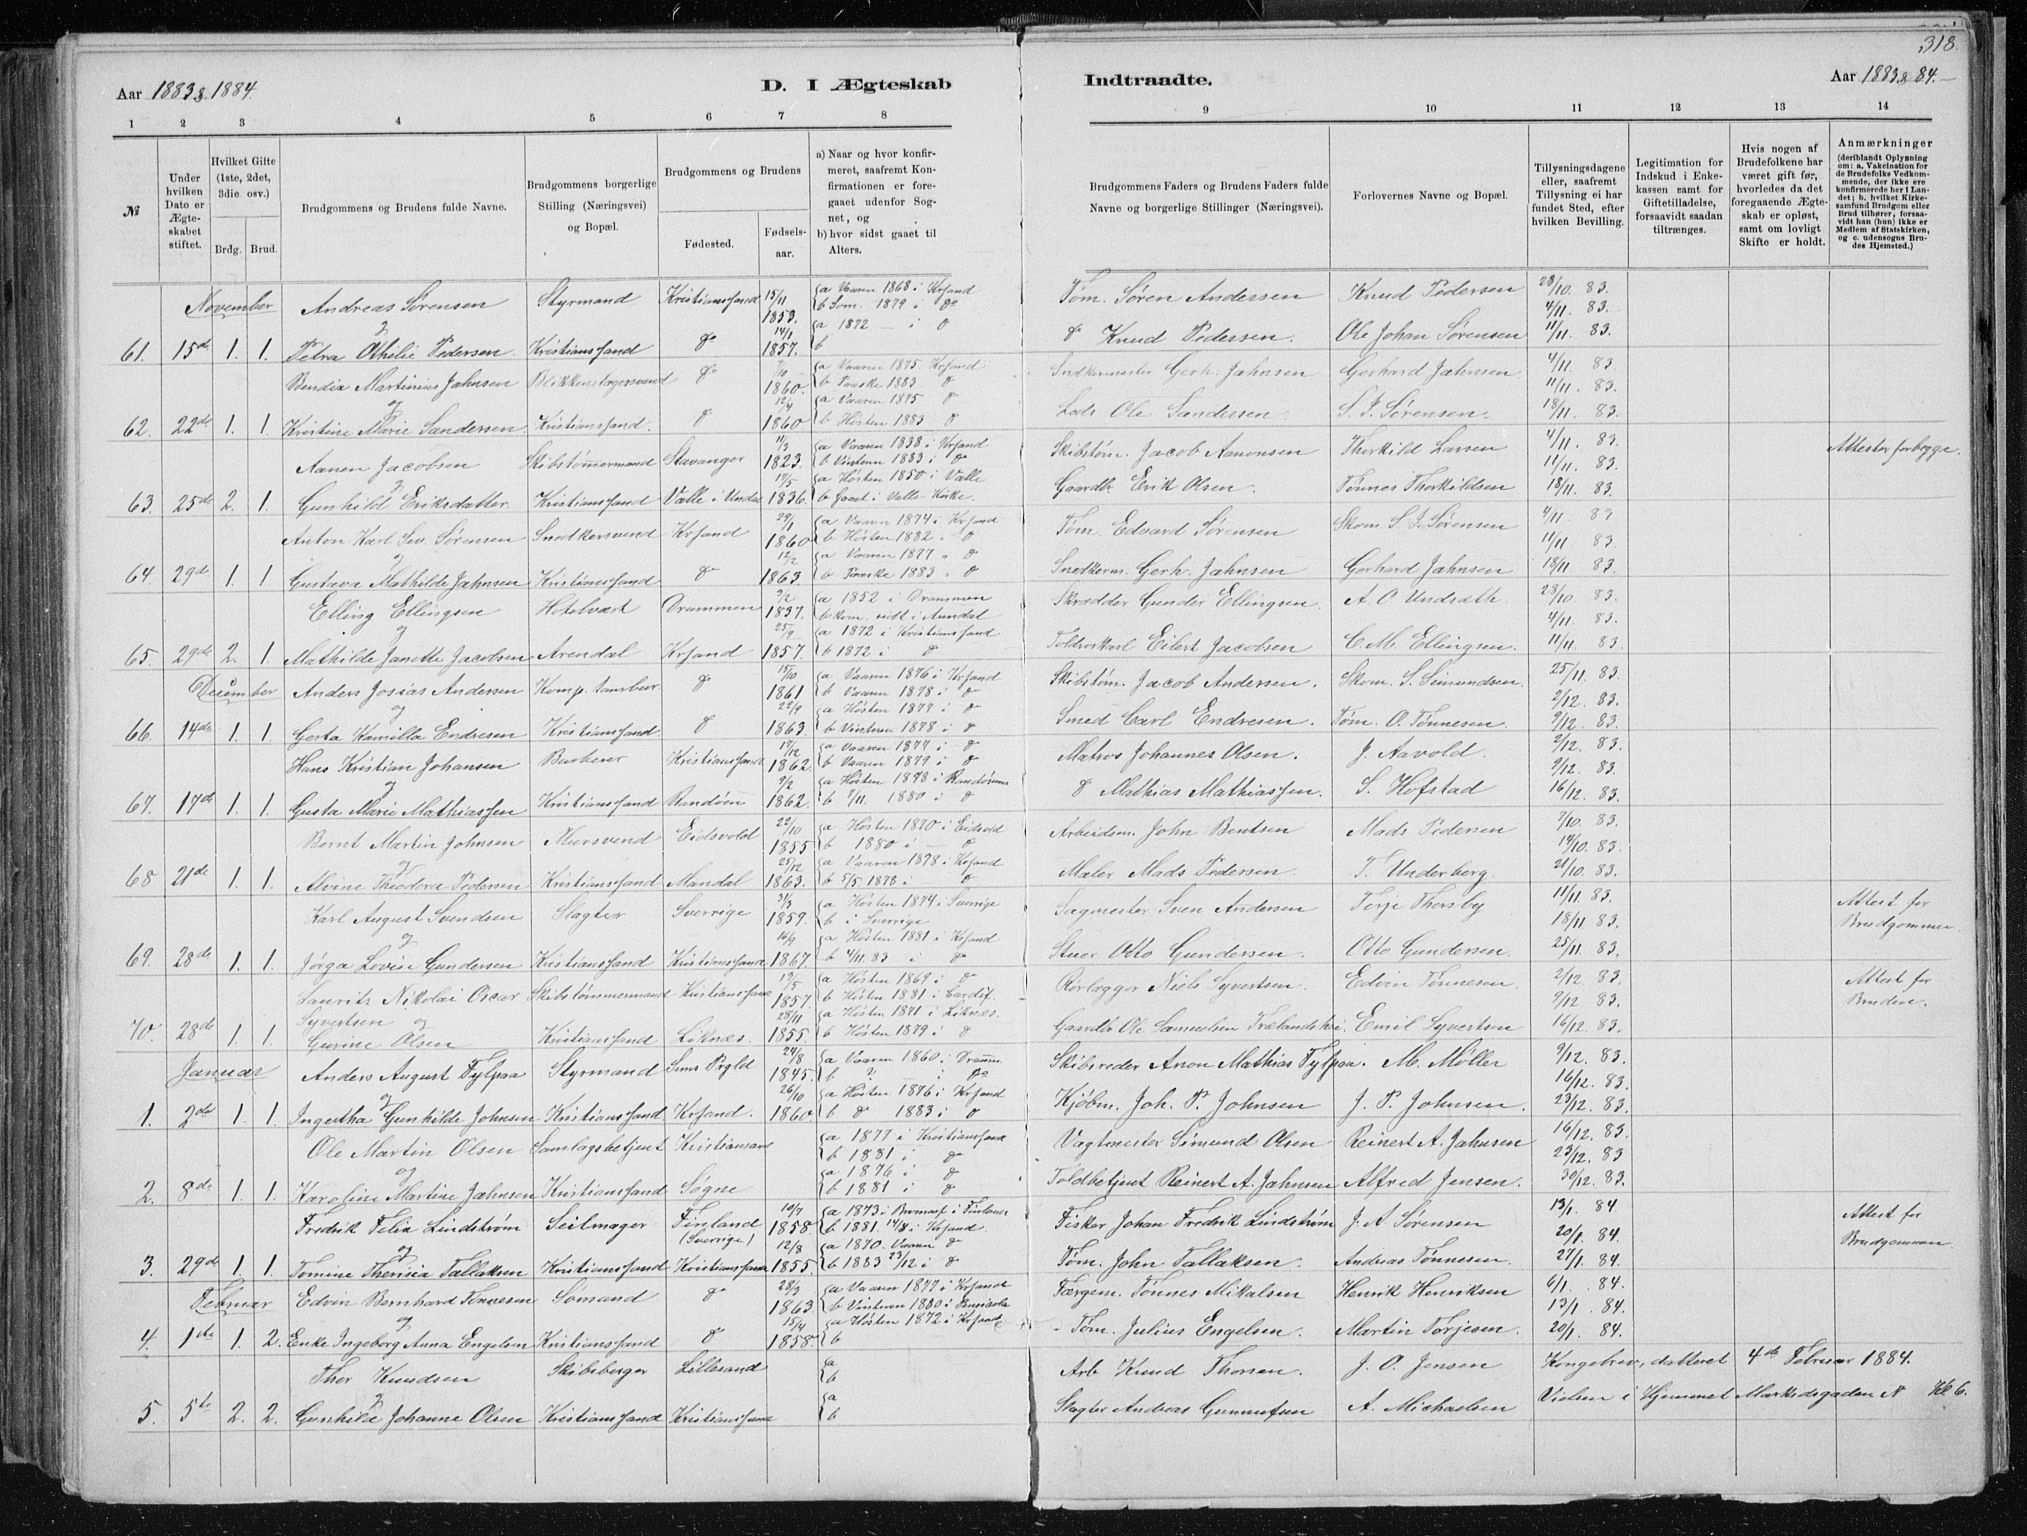 318.
Aar 1883 & 1884.
D. I Ægteskab
Indtraadte.
Aar 1883 & 84.
1 2 3 4 5 6 7 8 9 10 11 12 13 14
№
Under hvilken Dato er Ægteskabet stiftet.
Hvilket Gifte (1ste, 2det, 3die. osv.)
Brdg. Brud.
Brudgommens og Brudens fulde Navne.
Brudgommens borgerlige Stilling (Næringsvei) og Bopæl.
Brudgommens og Brudens
Fødested. Fødselsaar.
a) Naar og hvor konfirmeret, saafremt Konfirmationen er foregaaet udenfor Sognet, og
b) hvor sidst gaaet til Alters.
Brudgommens Faders og Brudens Faders fulde Navne og borgerlige Stillinger (Næringsvei).
Forlovernes Navne og Bopæl.
Tillysningsdagene eller, saafremt Tillysning ei har fundet Sted, efter hvilken Bevilling.
Legitimation for Indskud i Enkekassen samt for Giftetilladelse, forsaavidt saadan tiltrænges.
Hvis nogen af Brudefolkene har været gift før, hvorledes da det foregaaende Ægteskab er opløst, samt om lovligt Skifte er holdt.
Anmærkninger
(deriblandt Oplysning om: a. Vakcination for de Brudefolkes Vedkommende, der ikke ere konfirmerede her i Landet; b. hvilket Kirkesamfund Brudgom eller Brud tilhører, forsaavidt han (hun) ikke er Medlem af Statskirken, og c. udensogns Brudes Hjemsted.)
November Andreas Sørensen Styrmand Kristianssand 15/11 1853. a Vaaren 1868 i Krsand b Som. 1879 i do Tøm. Søren Andersen Knud Pedersen 28/10. 83. 4/11. 83.
61. 15de 1. 1. Petra Othilie Pedersen. Kristianssand do 14/1 1857. a 1872 i do b do Knud Pedersen. Ole Johan Sørensen 11/11. 83.
Bendix Martinius Jahnsen Blikkenslagersvend do 1860. a Vaaren 1875. Krsand b Paaske 1883 do Snedkermester Gerh. Jahnsen Gerhard Jahnsen 4/11. 83. 11/11. 83.
62. 22de 1. 1. Kristine Marie Sandersen Kristianssand. do 12/4 1860 a Vaaren 1875 do b Høsten 1883 do Lods Ole Sandersen. S. J. Sørensen. 18/11. 83.
Aanen Jacobsen Skibstømmermand Stavanger 1823. a Vaaren 1838 i Krsand b Vinteren 1883 i do Skibstøm. Jacob Aanonsen Thorkild Larsen 4/11. 83. 11/11. 83. Attester forbygge.
63. 25de 2. 1. Gunhild Eriksdatter. Kristianssand Valle i Undal 1836. a Høsten 1850 i Valle b Gaaet i Valle Kirke. Gaardbr. Erik Olsen. Tønnes Thorkildsen 18/11. 83.
Anton Karl Sev. Sørensen Snedkersvend Krsand 29/1 1860 a Vaaren 1874 i Krsand b Høsten 1882 i do Tøm. Edvard Sørensen Skom. S. J. Sørensen 4/11. 83 11/11. 83
64. 29de 1. 1 Gustava Mathilde Jahnsen Kristianssand do 12/2 1863. a Vaaren 1877 do b Paaske 1883 do Snedkerm. Gerh. Jahnsen Gerhard Jahnsen 18/11. 83.
Elling Ellingsen Hotelvært Drammen 1837. a 1852 i Drammen b kom. sidst i Arendal Skrædder Gunder Ellingsen. A. O Undsæth. 28/10. 83. 4/11. 83.
65. 29de 2. 1. Mathilde Janette Jacobsen Arendal Krsand 25/9 1857. a 1872 i Kristianssand b 1872 i do Toldroskarl Eilert Jacobsen C. M. Ellingsen. 11/11. 83.
December Anders Josias Andersen do 15/10 1861 a Vaaren 1876 i Krsand b Vaaren 1878. i do Skibstøm. Jacob Andersen. Skom. S. Simundsen. 25/11. 83. 2/12. 83.
66. 14de 1. 1. Gerta Kamilla Endresen Kristianssand. do 22/9 1863. a Høsten 1877 i do b Vinteren 1878 i do Smed Carl Endresen. Tøm. O. Tønnesen. 9/12. 83.
Hans Kristian Johansen Barberer Kristianssand 17/12 1862. a Vaaren 1877 i do b Vaaren 1879 i do Matros Johannes Olsen. J. Aavold. 2/12. 83. 9/12. 83.
67. 17de 1. 1. Gusta Marie Mathiassen Kristianssand Randøen 9/2 1862. a Høsten 1878 i Randøsund b 7/11. 1880 i do do Mathias Mathiassen. S. Hofstad 16/12. 83.
Bernt Martin Johnsen Mursvend Eidsvold 22/10 1855 a Høsten 1870 i Eidsvold b 1880 i do Arbeidsm. John Bentsen Mads Pedersen 7/10. 83. 14/10. 83.
68 21de 1. 1. Alvine Theodora Pedersen Kristianssand Mandal 25/12 1863. a Vaaren 1878 i Krsand b 5/5 1878 i do Maler Mads Pedersen. T. Underberg. 21/10. 83.
Karl August Svendsen Slagter Sverrige 3/3 1859. a Høsten 1874 i Sverrige b i Sverrige Sagmester Sven Andersen Torje Thorsby 11/11. 83. 18/11. 83. Attest for Brudgommen.
69. 28de 1. 1. Jørga Lovise Gundersen Kristianssand Kristianssand 16/9 1867. a Høsten 1881 i Krsand b 4/11. 83 i do Stuer Otto Gundersen. Otto Gundersen. 25/11. 83.
Laurits Nikolai Oscar Syvertsen Skibstømmermand Kristianssand 19/5 1857. a Høsten 1869 i do b Høsten 1881 i Cardif. Rørlægger Niels Syvertsen. Edvin Tønnesen. 2/12. 83. 9/12. 83. Attest for Bruden.
70. 28de 1. 1. og Gurine Olsen Kristianssand Liknes. 28/11 1855. a Høsten 1871 i Liknes. b Høsten 1879. i do Gaardbr Ole Samuelsen Emil Syvertsen 16/12. 83.
Januar Anders August Fylpaa Styrmand 24/8 1845. a Vaaren 1860 i b ? i do Skibsreder Anon Mathias Fylpaa. M. Møller 9/12. 83. 16/12. 83.
1. 2den 1. 1. Ingertha Gunhilde Johnsen Kristianssand Krsand. 26/10 1860. a Høsten 1876 i Krsand b do 1883 i do Kjøbm. Joh. P. Johnsen J. P. Johnsen. 23/12. 83.
Ole Martin Olsen Samlagsbetjent Kristianssand a 1877 i Kristianssand b 1881 i do Vagtmester Simund Olsen Reinert A. Jahnsen 16/12. 83. 23/12. 83
2. 8de 1. 1. Karoline Martine Jahnsen Kristianssand Søgne a 1876 i do b 1881 i do Toldbetjent Reinert A. Jahnsen Alfred Jensen. 30/12. 83.
Fredrik Felix Lindstrøm Seilmager Finland (Sverrige) 10/7 1858 a 1873 i i Finland b 1881. 14/8. i Krsand. Fisker Johan Fredrik Lindstrøm J. A. Sørensen 13/1. 84 20/1. 84. Attest for Brudgommen.
3. 29de 1. 1. Tomine Therisia Tallaksen Kristianssand Kristianssand 12/8 1855. a 1870. Vaaren do b 1883 23/12 i do Tøm. John Tallaksen. Andreas Tønnesen. 27/1. 84.
Februar Edvin Bernhard Tønnesen Sømand do 28/9 1863. a Vaaren 1877 i Krsand b Vinteren 1880 i Færgem. Tønnes Mikalsen Henrik Henriksen 6/1. 84. 13/1. 84.
4. 1ste 1. 2. Enke Ingeborg Anna Engelsen Kristianssand do 15/4 1858. a Høsten 1872 i Krsand b Tøm. Julius Engelsen. Martin Torjesen. 20/1. 84.
Thor Knudsen Skibsbygger Lillesand a b Arb Knud Thorsen. J. O. Jensen Kongebrev, datteret 4de Februar 1884.
5. 5te 2. 2. Gunhilde Johanne Olsen Kristianssand Kristianssand a b Slagter Andreas Gunnufsen A. Michaelsen Vielsen i Hjemmet Markedsgaden N Kl 6.